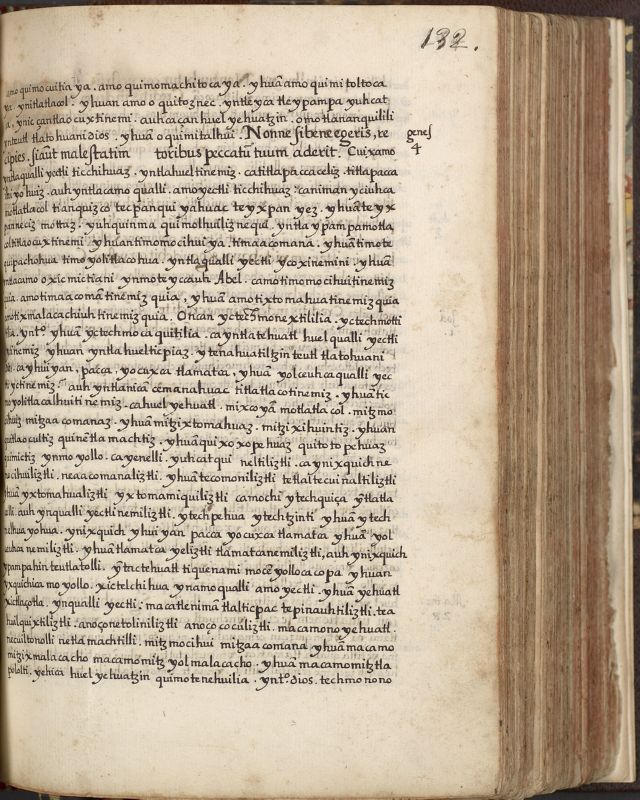 132.
amo quimocuitia ya. amo quimomachitocaya. yhuā amo quimitoltoca
yntlatlacol. yhuan amo o quitoznec. yntleyca tleypampa yuhcat
ynic çantlaocuxtinemi. auh ca çan huel yehuatzin. omotlananquilili
ynteutl tlatohuani dios. yhuā o quimitalhui. Nonne si bene egeris, re
genes 4
cipies. si aūt male statim toribus peccatū tuum aderit. Cuixamo
yntla qualli yectli ticchihuaz. yntla hueltinemiz. catitlapaccaceliz. titlapacca
yhiyohuiz. auh yntlacamo qualli. amo yectli ticchihuaz. caniman yciuhca
motlatlacol tianquizco tecpanquiyahuac teyxpan yez. yhuā teyx
panneciz mottaz. yuhquinma quimolhuiliznequi. yntla ypampa motla
coltilaocuxtinemi. yhuan timomocihuiya. timaacomana. yhuā timote
quipachohua timoyolitlacohua. yntla qualli yectli ycoxinemini. yhuā
yntlacamo oxicmictiani ynmoteyccauh Abel. camotimomocihuitinemiz
quia. amotimaacomātinemiz quia, yhuā amotixtomahuatinemiz quia
amotixmalacachiuhtinemiz quia. Oncan yctechmonextililia. yctechmotti
tilia. yntº yhuā yctechmocaquitilia. ca yntlatehuatl huel qualli yectli
tinemiz yhuan yntla hueltic piaz. ytenahuatiltzin teutl tlatohuani
dios. ca yhuiyan, pacca, yocuxca tlamatca, yhuā yolceuhca qualli yec
ticytinemiz. auh yntlanican cemanahuac titlatlacotinemiz. yhuā tic
moyolitlacalhuitinemiz. cahuel yehuatl. mixcoyā motlatlacol. mitzmo
cihuiz mitzaacomanaz. yhuā mitzixtomahuaz. mitzixihuintiz. yhuan
mitzlaocultiz quinētlamachtiz. yhuā quixoxopehuaz quitotopehuaz
quimictiz ynmoyollo. cayenelli. yuhcatqui neltiliztli. ca ynixquich ne
mocihuiliztli. neaacomanaliztli. yhuā tecomoniliztli tetlaltecuinaltiliztli
yhuā yxtomahualiztli yxtomamiquiliztli camochi ytechquiça ȳtlatla
colli. auh ynqualli yectli nemiliztli. ytechpehua ytechtzinti yhuā ytech
nelhuayohua. ynixquich yhuiyan pacca yocuxca tlamatca yhuā yol
ceuhca nemiliztli. yhuā tlamatca yeliztli tlamatcanemiliztli, auh ynixquich
ypampahin teutlatolli. ȳtictehuatl tiquenami mocēyollocacopa yhuan
yxquichica moyollo. xictelchihua ynamoqualli amo yectli. yhuā yehuatl
xictlaçotla. ynqualli yectli: macatlenimā tlalticpac tepinauhtiliztli. tea
huilquixtiliztli. anoçonetoliniliztli anoço cocoliztli. macamono yehuatl.
necuiltonolli netlamachtilli. mitzmocihui mitzaacomana yhuā macamo
mitzixmalacacho macamomitz yolmalacacho. yhuā macamomitztla
pololti. yehica huel yehuatzin quimotenehuilia. yntº. dios. techmonono